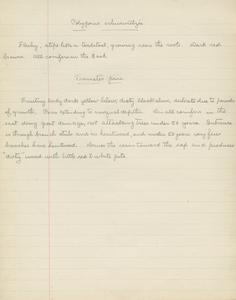 Polyporus schweinitzii
Fleshy, stipe like a toadstool, growing near the roots. Dark red
brown. All conifers in the East.
Trametes pini
Fruiting body dark yellow below, dirty black above, indurate due to
of growth. Pores extending to unequal depths. On all conifers in the
east doing great damage, not attacking trees under 50 years. Entrance
is through branch stubs and in heartwood, and under 50 years very few
branches have heartwood. Across the toward the sap and produces
"dirty" wood with little red & white pits.